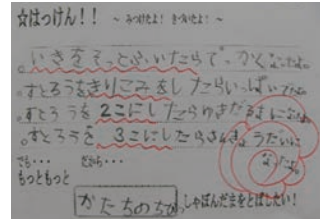 ☆はっけん！！ ～みつけたよ！ きづいたよ！～
。いきをそっとふいたらで。かくなったよ。
。すとろうをきりこみをしたらいっぱい
。すとろうを2こにしたらゆきだるまになったよ。
。すとろうを3こにしたらさんきょうだいに
なったよ。
でも・・・ だから・・・
もっともっと
かたちのちがう しゃぼんだまをとばしたい！